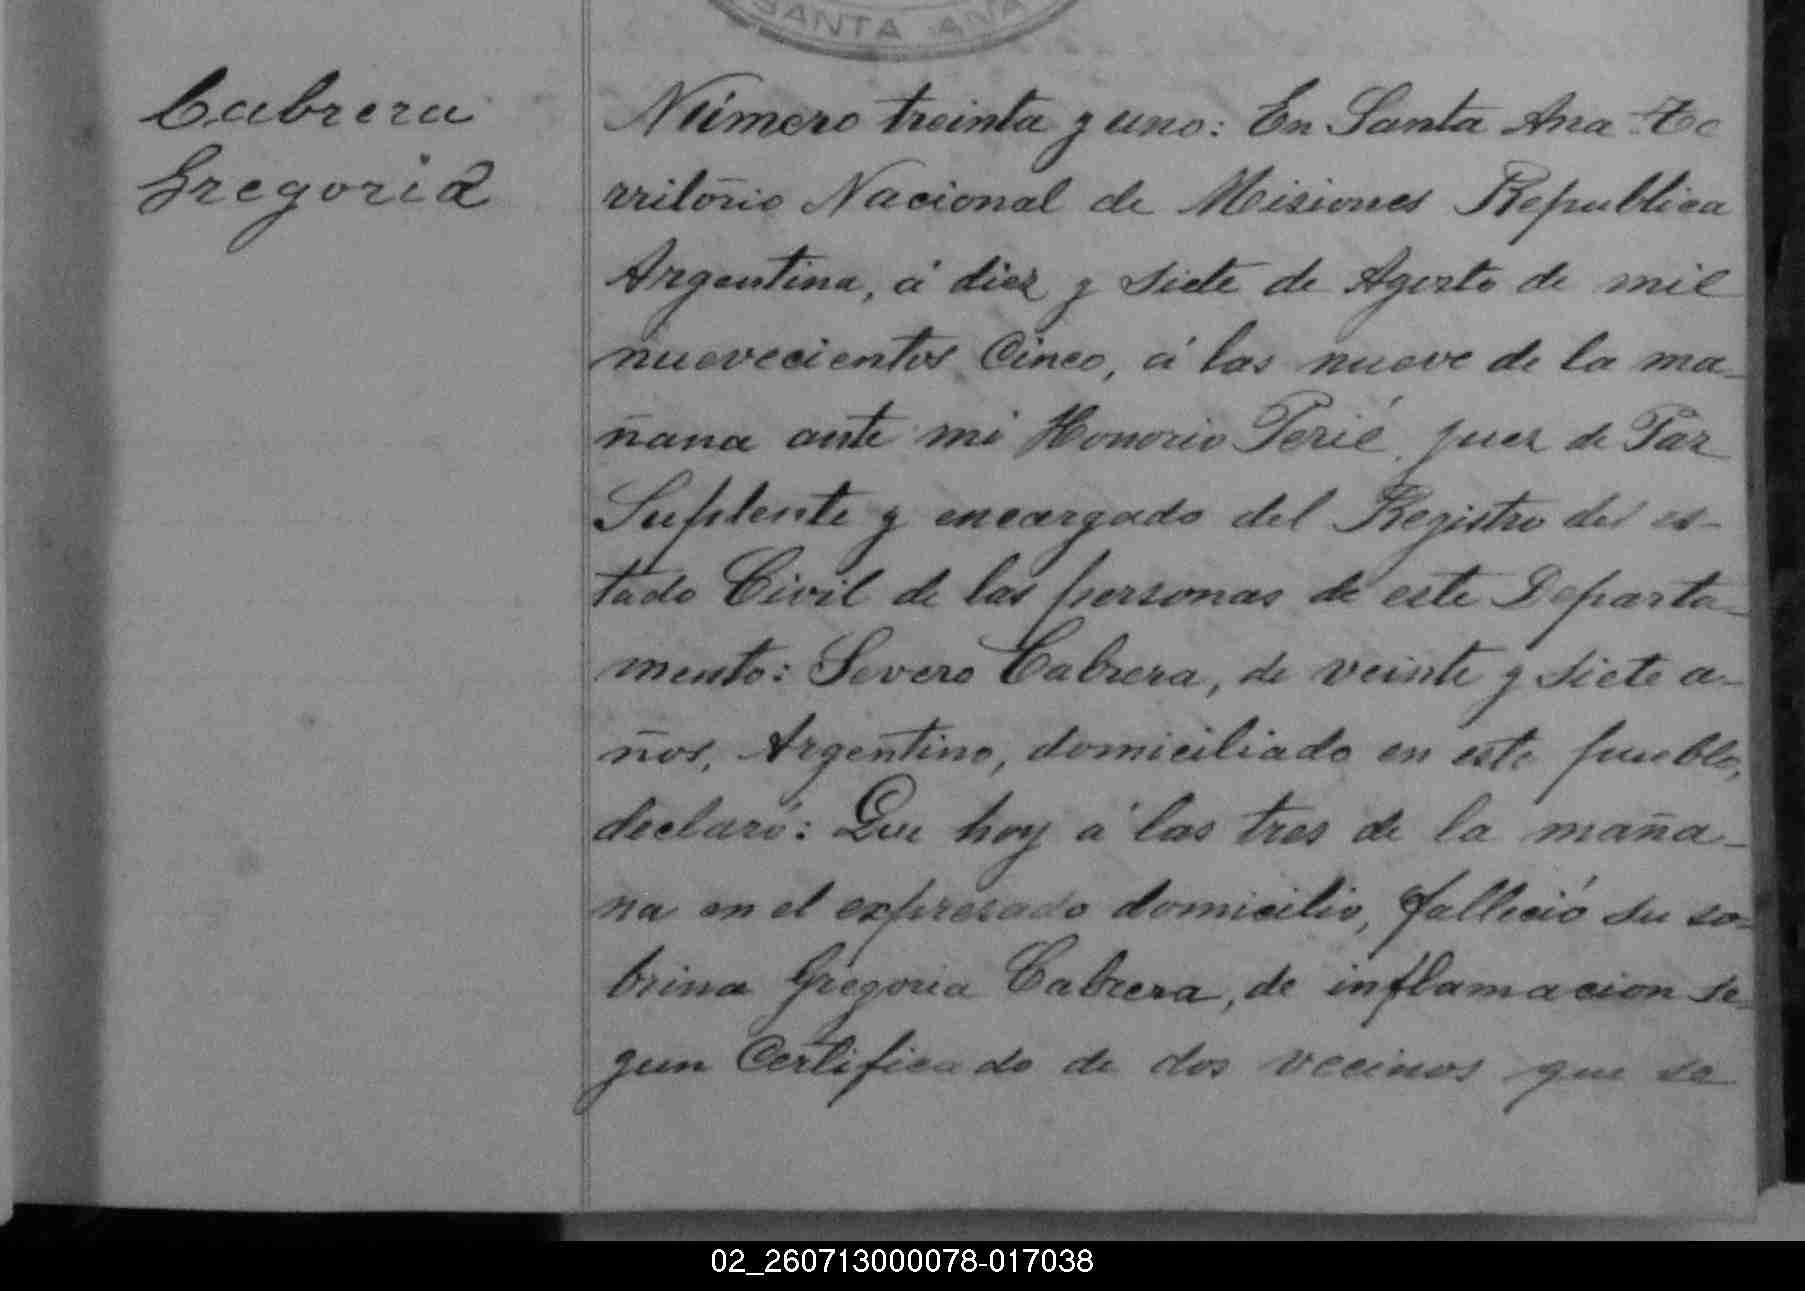 SANTA ANA
Cabrera
Gregoria
Número treinta y uno: En Santa Ana Te
rritorio Nacional de Misiones Republica
Argentina, á diez y siete de Agosto de mil
nuevecientos Cinco, á las nueve de la ma-
ñana ante mi Honorio Perié, juez de Paz
Suplente y encargado del Registro del es-
tado Civil de las personas de este Departa-
mento: Severo Cabrera, de veinte y siete a-
ños, Argentino, domiciliado en este pueblo,
declaró: Que hoy á las tres de la maña-
na en el expresado domicilio, falleció su so-
brina Gregoria Cabrera, de inflamacion se-
gun Certificado de dos vecinos que se
02_260713000078-017038